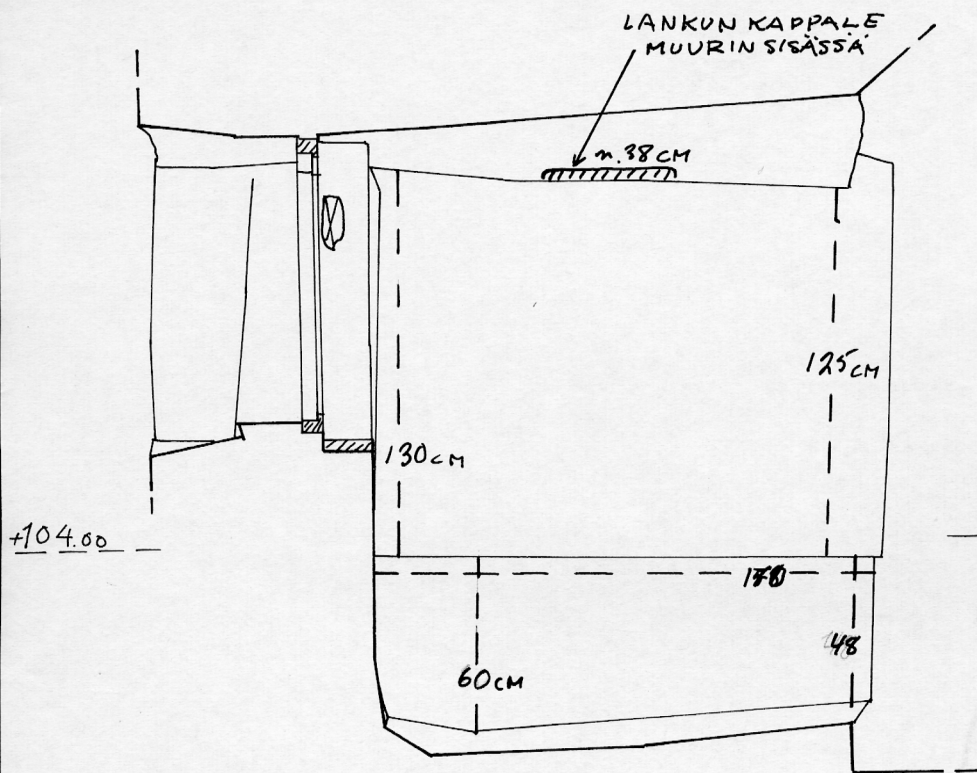 LANKUN KAPPALE
MUURIN SISÄSSÄ
n.38 CM
125 CM
130 CM
+104.00
48
60 CM